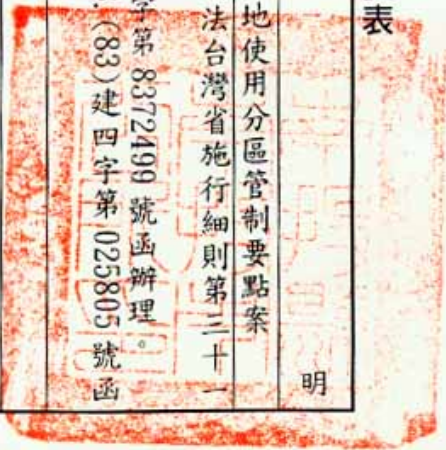 表
明
地使用分區管制要點案
法台灣省施行細則第三十一
字第 8372499 號函辦理。
(83)建四字第 025805 號函